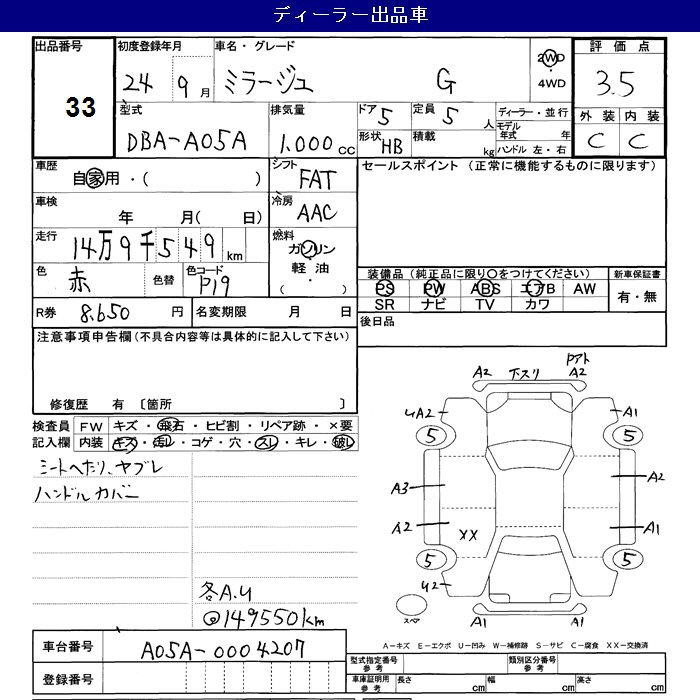 ディーラー出品車
出品番号
33
初度登録年月
24 9月
車名・グレード
ミラージュ G
2WD
・
4WD
評価点
3.5
型式
DBA-A05A
排気量
1.000 cc
ドア 5
定員 5 人
ディーラー・並行
モデル年式 年
ハンドル 左・右
形状 HB
積載 kg
外装 内装
C C
車歴
自家用・( )
シフト
FAT
セールスポイント (正常に機能するものに限ります)
車検
年 月( 日)
冷房
AAC
走行
14万9千549km
燃料
ガソリン
軽油
( ・ )
色
赤
色替
色コード
P19
装備品(純正品に限り○をつけてください)
新車保証書
PS PW ABS エアB AW
SR ナビ TV カワ
有・無
R券 8.650 円
名変期限 月 日
後日品
注意事項申告欄(不具合内容等は具体的に記入して下さい)
修復歴 有 〔箇所 〕
検査員記入欄
FW キズ・飛石・ヒビ割・リペア跡・×要
内装 キズ・汚レ・コゲ・穴・スレ・キレ・破レ
シートヘたり、ヤブレ
ハンドルカバー
各A.U
149550km
A2 下スリ A2
UA2 A1
5 5
A3 A2
A2 XX A1
5 5
U2
スペア A1 A1
車台番号 A05A-0004207
登録番号
A-キズ E-エクボ U-凹み W-補修跡 S-サビ C-腐食 XX-交換済
型式指定番号 参考
類別区分番号 参考
車庫証明用 参考
長さ cm 幅 cm 高さ cm